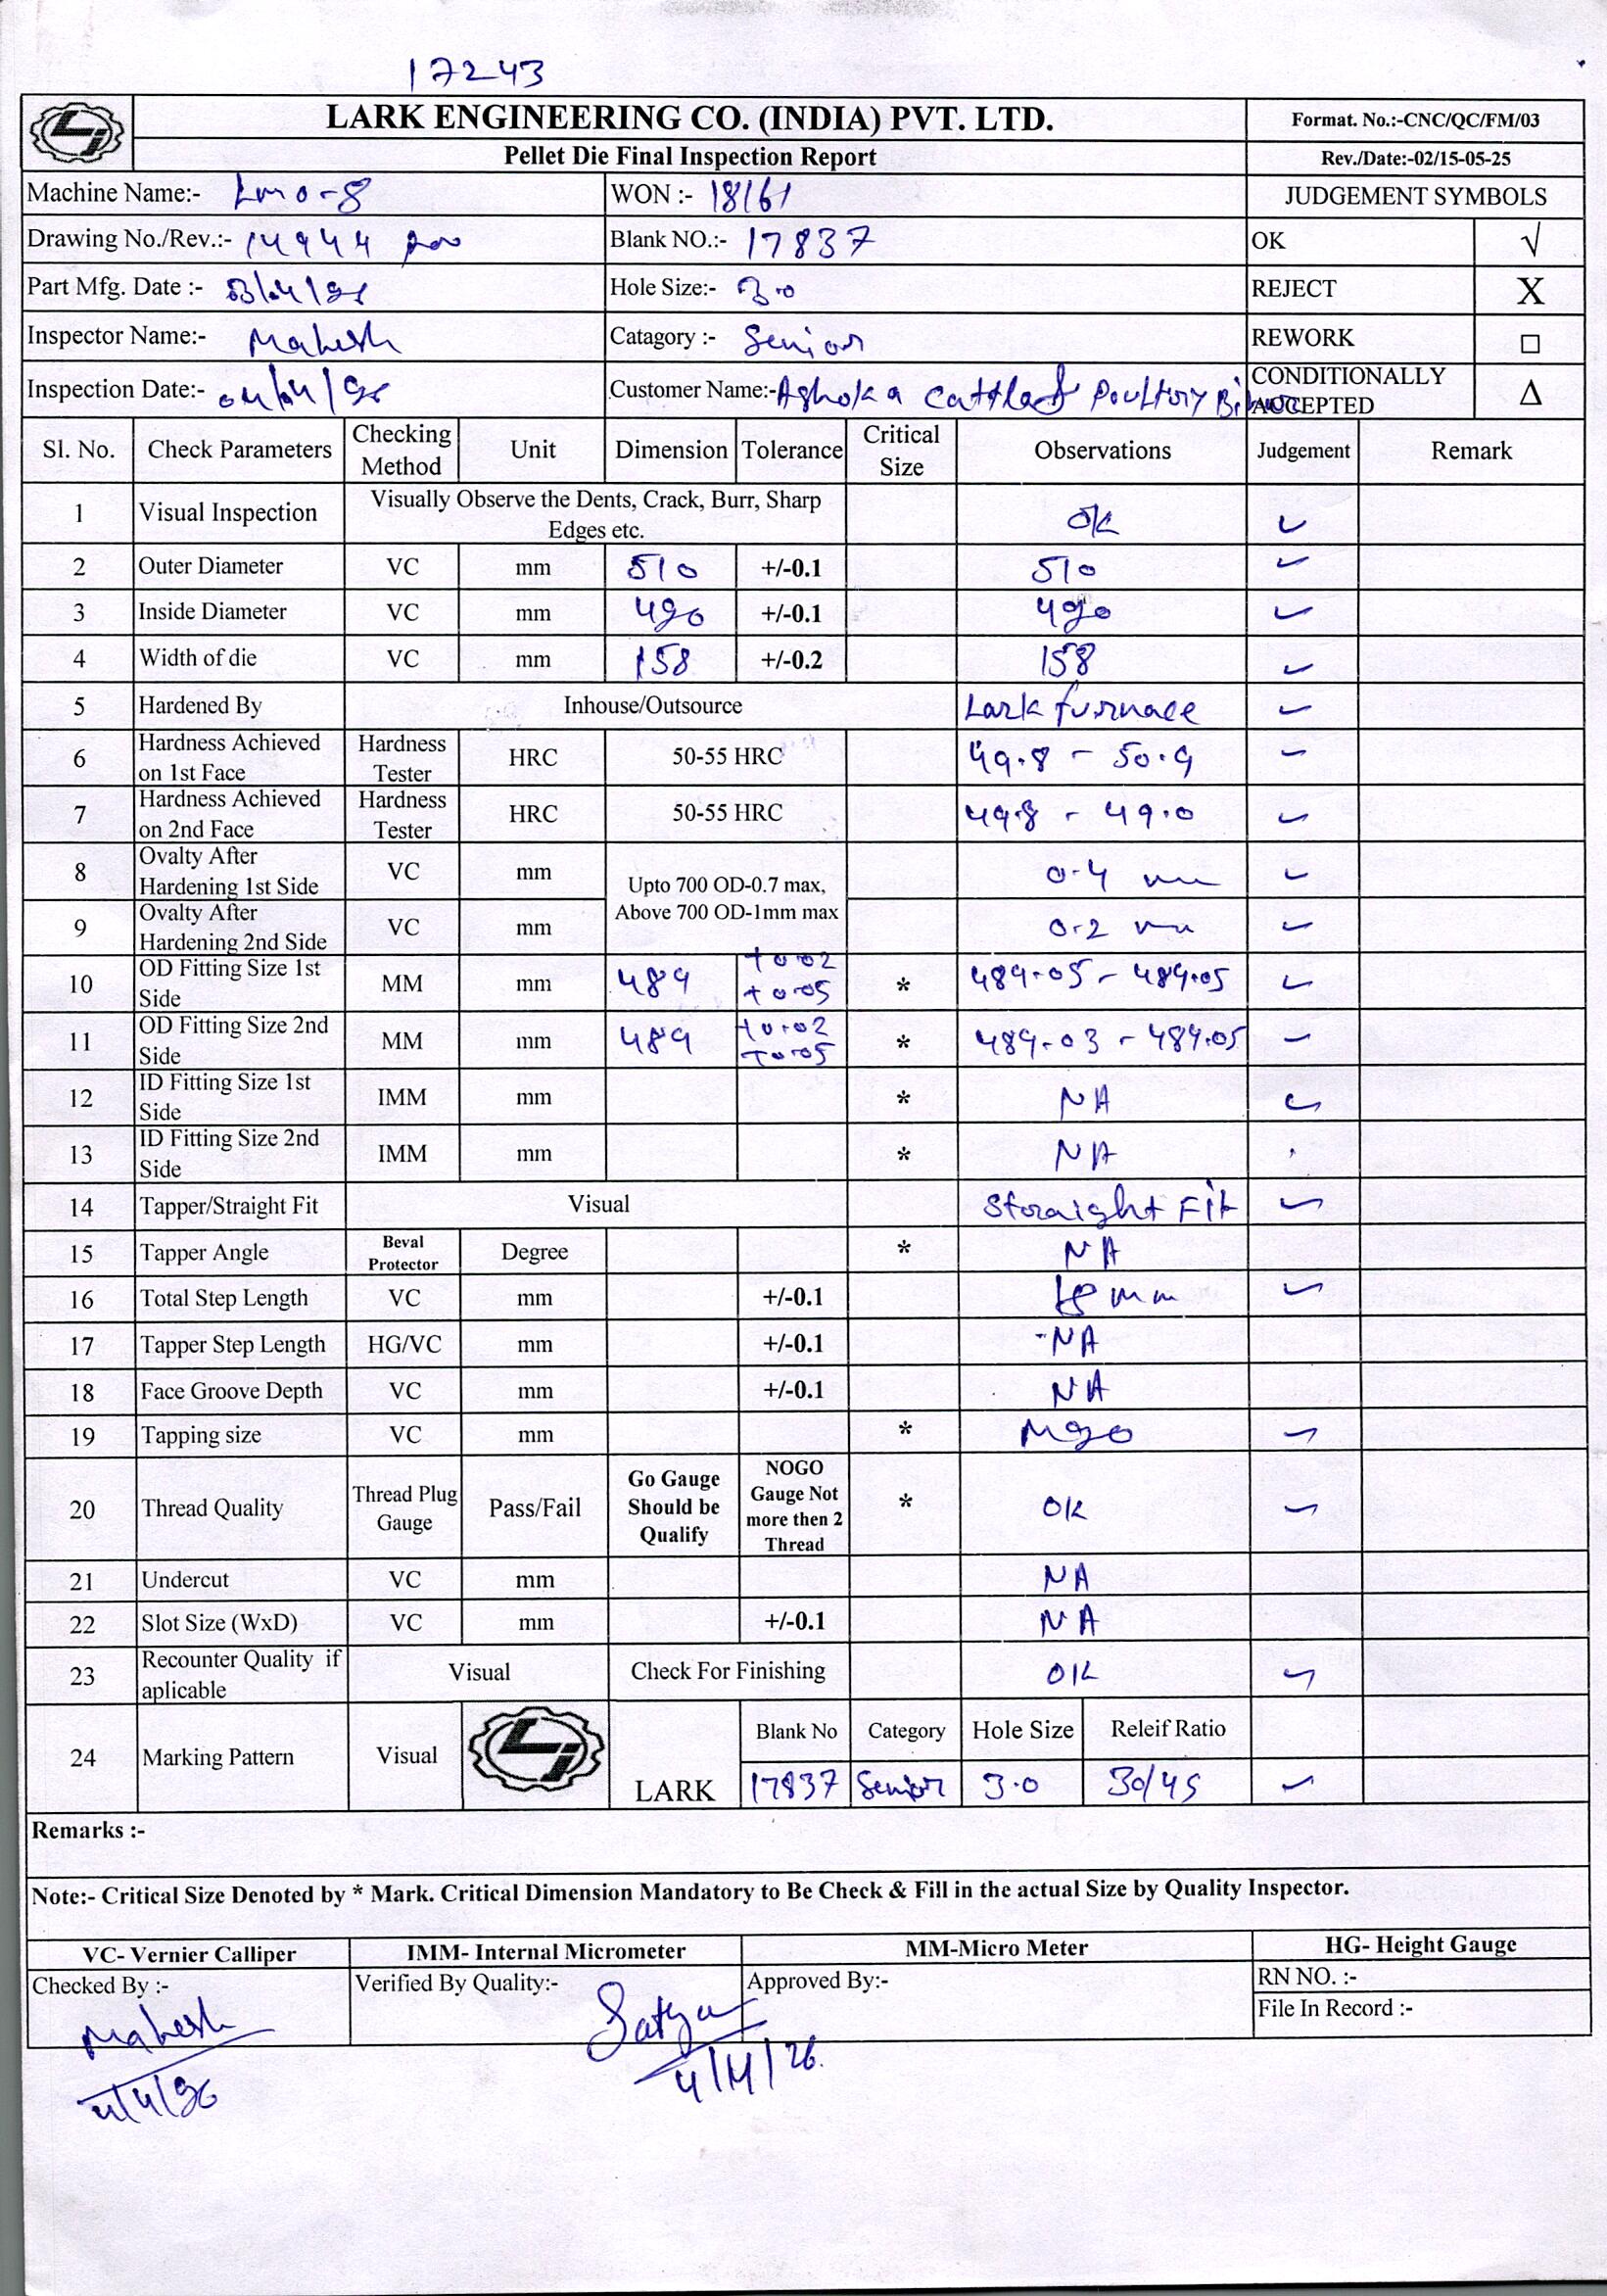 17243
LARK ENGINEERING CO. (INDIA) PVT. LTD.
Format. No.:-CNC/QC/FM/03
Pellet Die Final Inspection Report
Rev./Date:-02/15-05-25
Machine Name:- WON :- 18161 JUDGEMENT SYMBOLS
Drawing No./Rev.:- 14944 Blank NO.:- 17837 OK √
Part Mfg. Date :- Hole Size:- 3.0 REJECT X
Inspector Name:- Mahesh Catagory :- Senior REWORK □
Inspection Date:- Customer Name:- Ashoka Cattle & Poultory CONDITIONALLY ACCEPTED Δ
Sl. No. Check Parameters Checking Method Unit Dimension Tolerance Critical Size Observations Judgement Remark
1 Visual Inspection Visually Observe the Dents, Crack, Burr, Sharp Edges etc. OK ✓
2 Outer Diameter VC mm 510 +/-0.1 510 ✓
3 Inside Diameter VC mm 420 +/-0.1 420 ✓
4 Width of die VC mm 158 +/-0.2 158 ✓
5 Hardened By Inhouse/Outsource Lark furnace ✓
6 Hardness Achieved on 1st Face Hardness Tester HRC 50-55 HRC 49.8 - 50.9 ✓
7 Hardness Achieved on 2nd Face Hardness Tester HRC 50-55 HRC 49.8 - 49.0 ✓
8 Ovalty After Hardening 1st Side VC mm Upto 700 OD-0.7 max, Above 700 OD-1mm max 0.4 mm ✓
9 Ovalty After Hardening 2nd Side VC mm 0.2 mm ✓
10 OD Fitting Size 1st Side MM mm 489 +0.02 +0.05 * 489.05 - 489.05 ✓
11 OD Fitting Size 2nd Side MM mm 489 +0.02 +0.05 * 489.03 - 489.05 ✓
12 ID Fitting Size 1st Side IMM mm * NA ✓
13 ID Fitting Size 2nd Side IMM mm * NA
14 Tapper/Straight Fit Visual Straight Fit ✓
15 Tapper Angle Beval Protector Degree * NA
16 Total Step Length VC mm +/-0.1 mm ✓
17 Tapper Step Length HG/VC mm +/-0.1 NA
18 Face Groove Depth VC mm +/-0.1 NA
19 Tapping size VC mm * M20 ✓
20 Thread Quality Thread Plug Gauge Pass/Fail Go Gauge Should be Qualify NOGO Gauge Not more then 2 Thread * OK ✓
21 Undercut VC mm NA
22 Slot Size (WxD) VC mm +/-0.1 NA
23 Recounter Quality if aplicable Visual Check For Finishing OK ✓
24 Marking Pattern Visual LARK Blank No Category Hole Size Releif Ratio
17837 Senior 3.0 30/45 ✓
Remarks :-
Note:- Critical Size Denoted by * Mark. Critical Dimension Mandatory to Be Check & Fill in the actual Size by Quality Inspector.
VC- Vernier Calliper IMM- Internal Micrometer MM-Micro Meter HG- Height Gauge
Checked By :- Verified By Quality:- Approved By:- RN NO. :-
File In Record :-
Mahesh Satya
4/4/26 4/4/26.